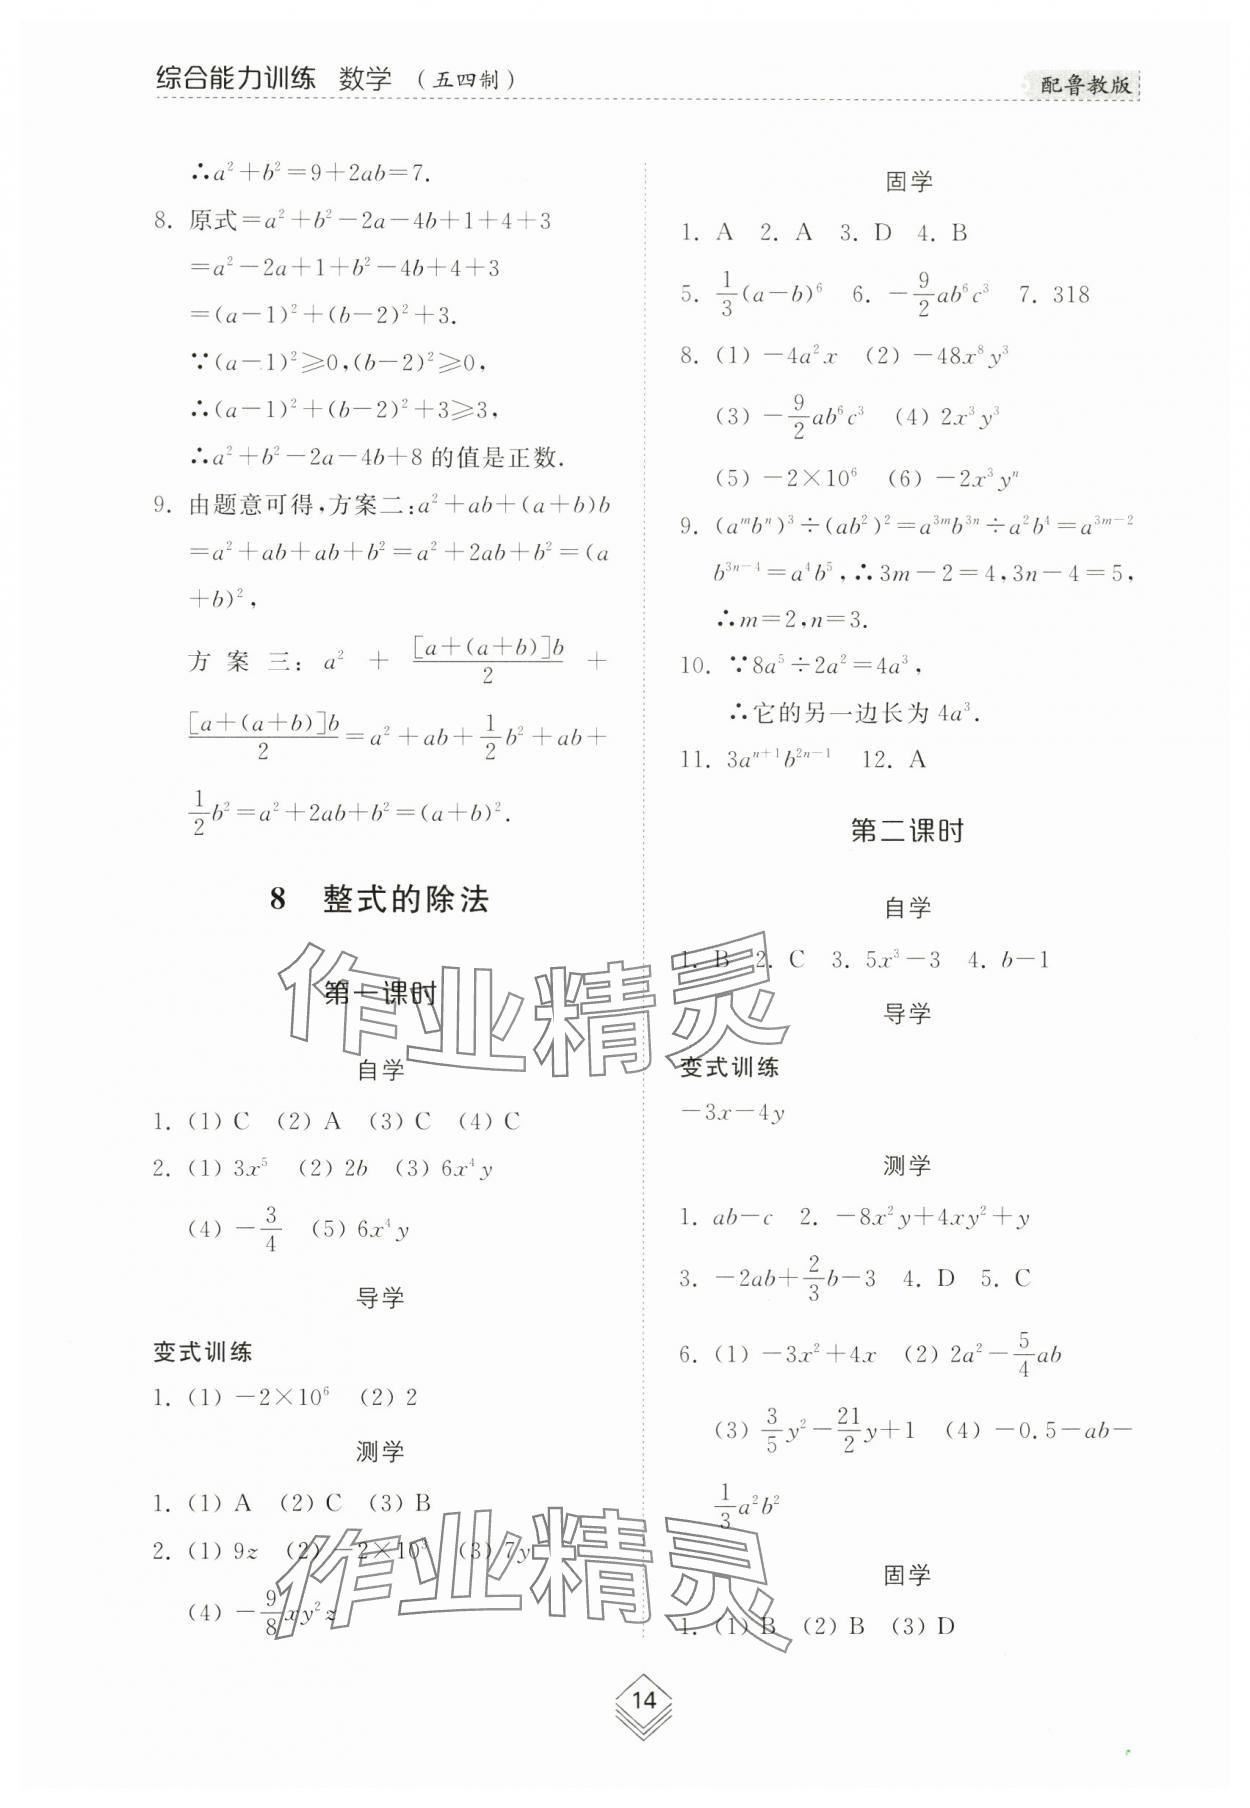 综合能力训练 数学 (五四制)
配鲁教版
∴a²+b²=9+2ab=7.
8. 原式=a²+b²-2a-4b+1+4+3
=a²-2a+1+b²-4b+4+3
=(a-1)²+(b-2)²+3.
∵(a-1)²≥0,(b-2)²≥0,
∴(a-1)²+(b-2)²+3≥3,
∴a²+b²-2a-4b+8 的值是正数.
9. 由题意可得,方案二:a²+ab+(a+b)b
=a²+ab+ab+b²=a²+2ab+b²=(a
+b)²,
方案三: a² + \frac{[a+(a+b)]b}{2} +
\frac{[a+(a+b)]b}{2}=a²+ab+\frac{1}{2}b²+ab+
\frac{1}{2}b²=a²+2ab+b²=(a+b)².
8 整式的除法
第一课时
自学
1. (1) C (2) A (3) C (4) C
2. (1) 3x⁵ (2) 2b (3) 6x⁴y
(4) -\frac{3}{4} (5) 6x⁴y
导学
变式训练
1. (1) -2×10⁶ (2) 2
测学
1. (1) A (2) C (3) B
2. (1) 9z (2) -2×10³ (3) 7y
(4) -\frac{9}{8}xy²z
固学
1. A 2. A 3. D 4. B
5. \frac{1}{3}(a-b)⁶ 6. -\frac{9}{2}ab⁶c³ 7. 318
8. (1) -4a²x (2) -48x⁸y³
(3) -\frac{9}{2}ab⁶c³ (4) 2x³y³
(5) -2×10⁶ (6) -2x³yⁿ
9. (aᵐbⁿ)³÷(ab²)²=a³ᵐb³ⁿ÷a²b⁴=a³ᵐ⁻²
b³ⁿ⁻⁴=a⁴b⁵,∴3m-2=4,3n-4=5,
∴m=2,n=3.
10. ∵8a⁵÷2a²=4a³,
∴它的另一边长为 4a³.
11. 3aⁿ⁺¹b²ⁿ⁻¹ 12. A
第二课时
自学
1. B 2. C 3. 5x³-3 4. b-1
导学
变式训练
-3x-4y
测学
1. ab-c 2. -8x²y+4xy²+y
3. -2ab+\frac{2}{3}b-3 4. D 5. C
6. (1) -3x²+4x (2) 2a²-\frac{5}{4}ab
(3) \frac{3}{5}y²-\frac{21}{2}y+1 (4) -0.5-ab-
\frac{1}{3}a²b²
固学
1. (1) B (2) B (3) D
14
作业精灵
作业精灵